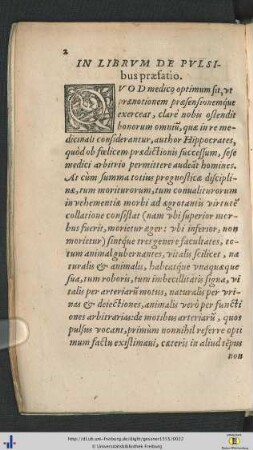 2
IN LIBRVM DE PVLSI-
bus præfatio.
QVOD medico optimum sit, vt
prænotionem præsensionemque
exerceat, clarè nobis ostendit
bonorum omniũ, quæ in re me-
dicinali considerantur, author Hippocrates,
quòd ob fœlicem prædictionis successum, sese
medici arbitrio permittere audeãt homines.
At cùm summa totius prognosticæ discipli-
næ, tum moriturorum, tum conualiturorum
in vehementiæ morbi ad ægrotantis virtutẽ
collatione consistat (nam vbi superior mor-
bus fuerit, morietur æger: vbi inferior, non
morietur) sintque tres genere facultates, to-
tum animal gubernantes, vitalis scilicet, na
turalis & animalis, habeatque vnaquæque
sua, tum roboris, tum imbecillitatis signa, vi
talis per arteriarũ motus, naturalis per vri-
nas & deiectiones, animalis verò per functi
ones arbitrarias: de motibus arteriarũ, quos
pulsus vocant, primùm nonnihil referre opti
mum factu existimaui, cæteris in aliud tẽpus
non
http://dl.ub.uni-freiburg.de/diglit/gesner1555/0022
© Universitätsbibliothek Freiburg